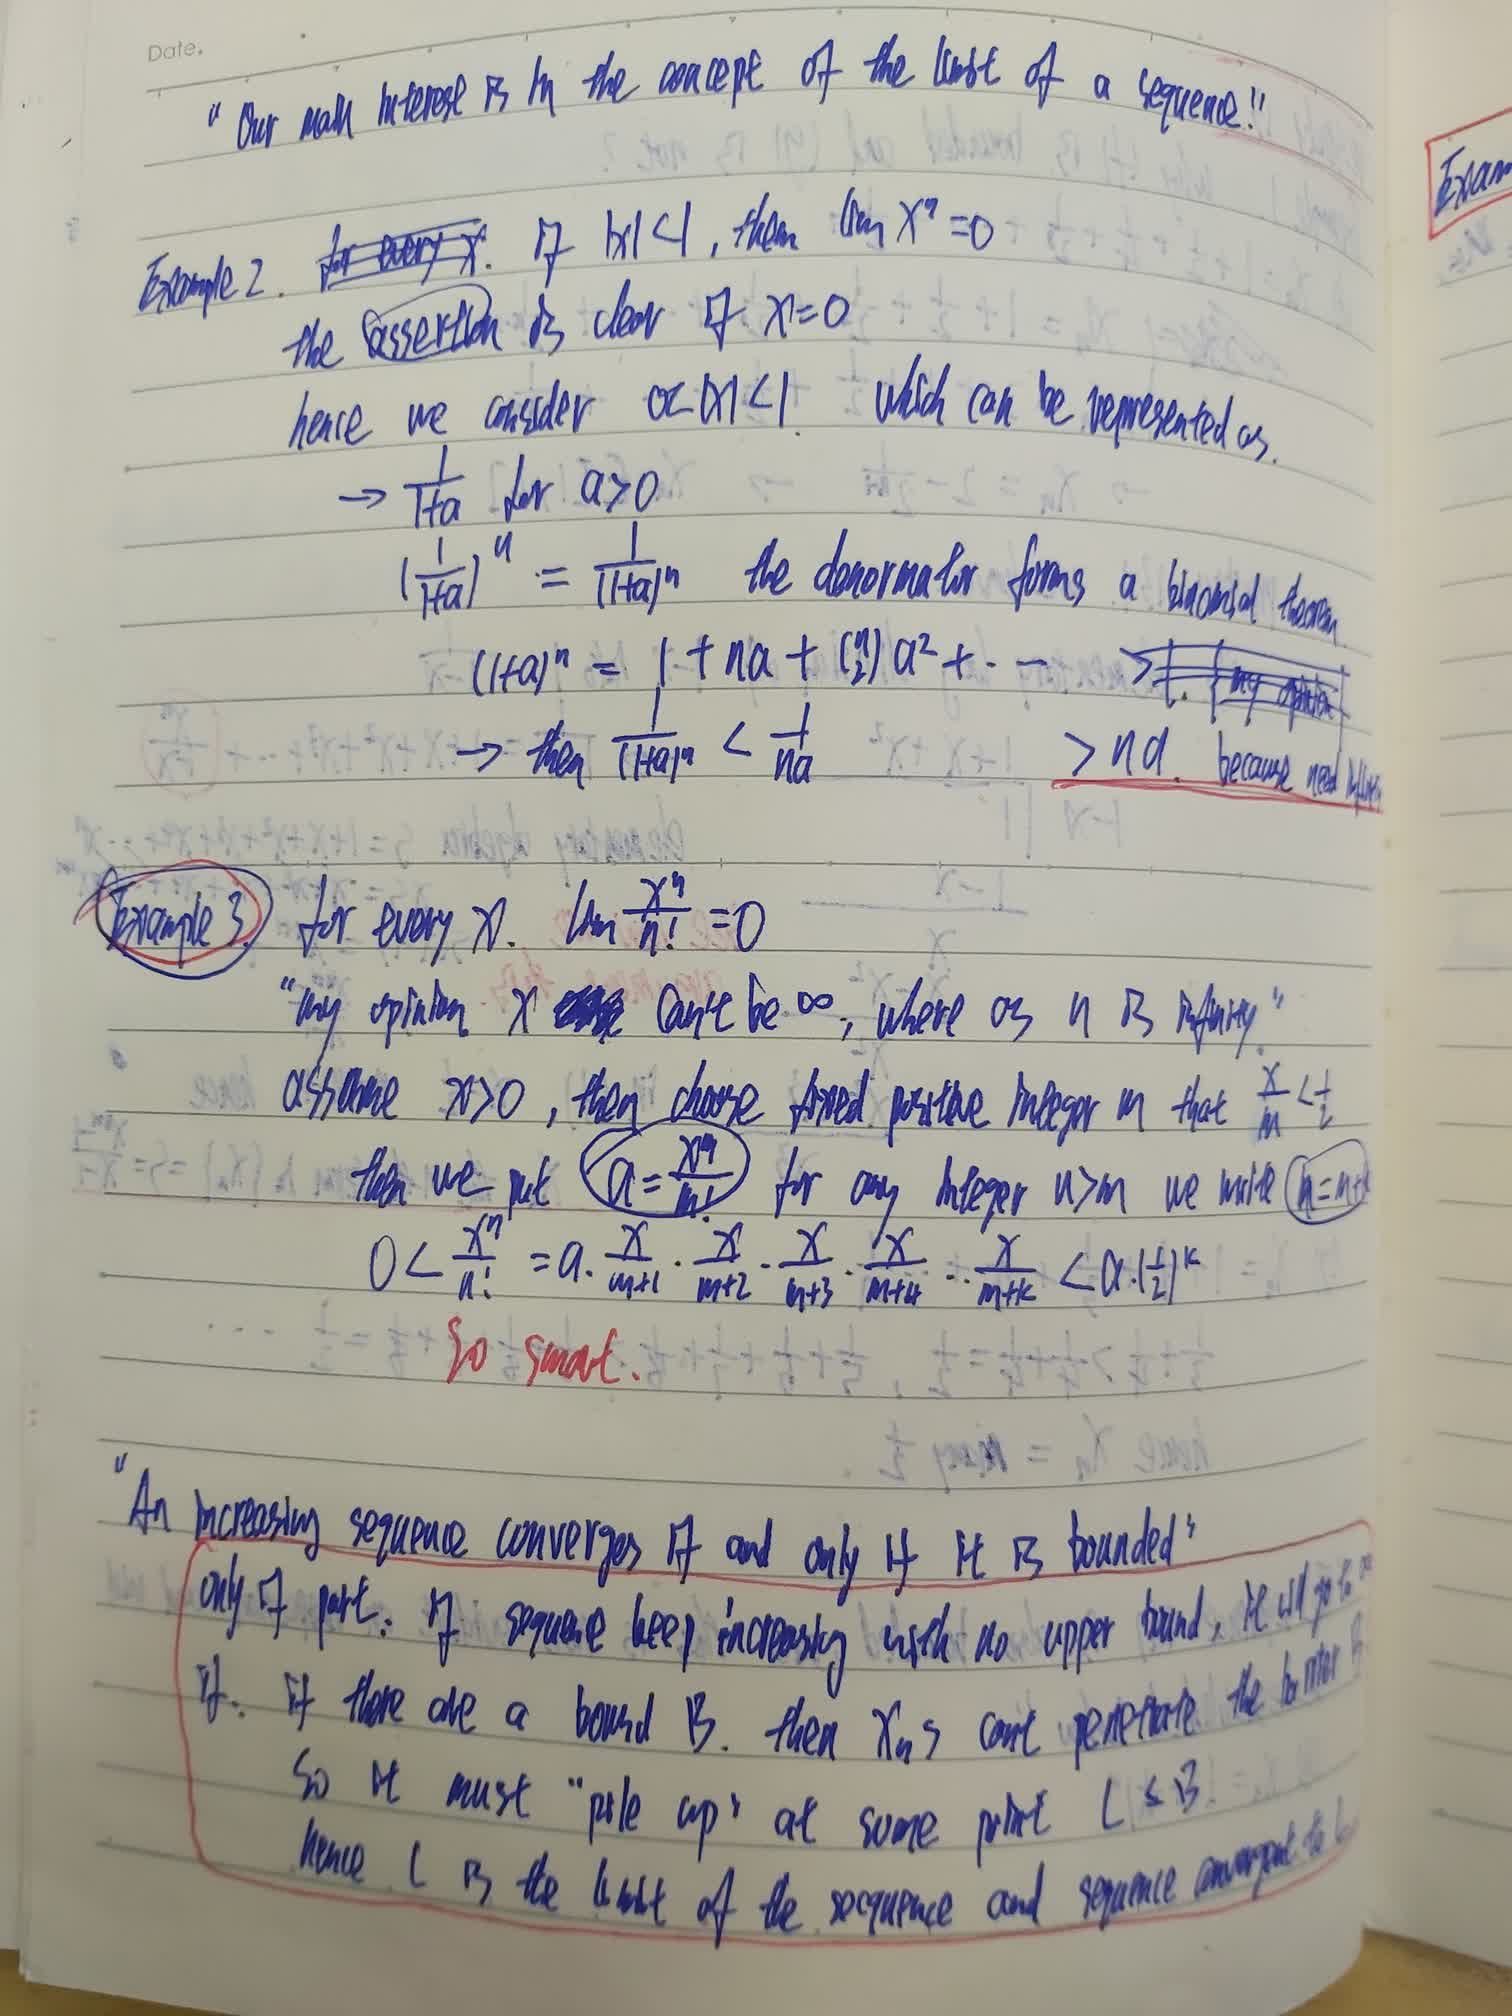 Date.
"Our main interest is in the concept of the limit of a sequence!"
Example 2. for every x. If |x|<1, then lim xⁿ=0
the assertion is clear if x=0
hence we consider 0<|x|<1. which can be represented as.
→ 1/(1+a) for a>0
(1/(1+a))ⁿ = 1/(1+a)ⁿ the donormator forms a binomial theorem
(1+a)ⁿ = 1 + na + (n 2)a² + ·· > my opinion
→ then 1/(1+a)ⁿ < 1/na > na. because need
Example 3. for every x. lim xⁿ/n! =0
"my opinion x can't be ∞, where as n is infinity."
assume x>0, then choose fixed positive integer m that x/m < 1/2
then we put a = xᵐ/m! for any integer n>m we write
0 < xⁿ/n! = a· x/(m+1) · x/(m+2) · x/(m+3) · x/(m+4) ·· x/(m+k) < a·(1/2)ᵏ
So smart.
"An increasing sequence converges if and only if it is bounded"
only if part. if sequence keep increasing with no upper bound, it will go to ∞
if. if there are a bound B. then xₙs can't penetrate the barrier B
So it must "pile up" at some point L ≤ B
hence L is the limit of the secquence and sequence convergent to L
Exam